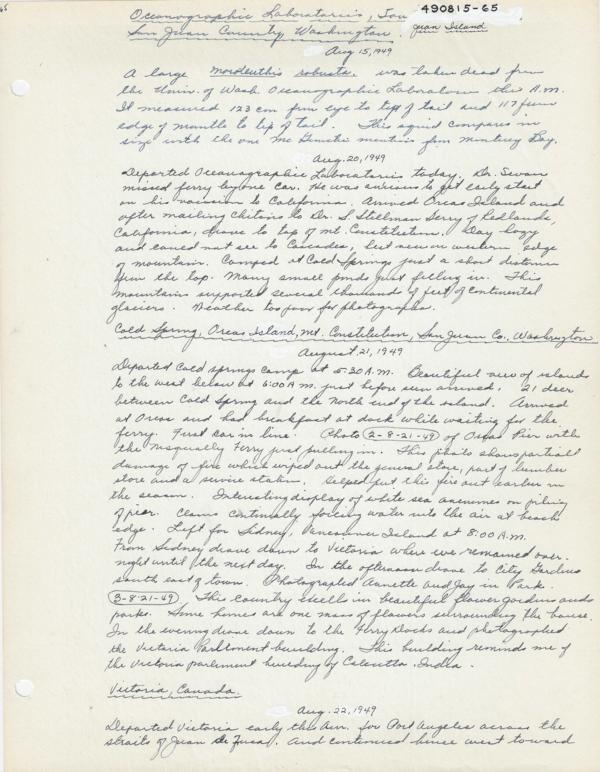 65
490815-65
Oceanographic Laboratories, San Juan Island
San Juan County, Washington
Aug 15, 1949
A large Moroteuthis robusta, was taken dead from
the Univ. of Wash Oceanographic Laboratories this A.M.
It measured 123 cm from eye to tip of tail and 117 from
edge of mantle to tip of tail. This squid compares in
size with the one Mc Ginitie mentions from Monterey Bay.
Aug. 20, 1949
Departed Oceanographic Laboratories today. Dr. Swan
missed ferry by one car. He was anxious to get early start
on his vacation to California. Arrived Orcas Island and
after mailing chitons to Dr. S. Stillman Berry of Redlands,
California, drove to top of Mt. Constitution. Day hazy
and could not see to Cascades, but saw on western edge
of mountain. Camped at Cold Springs just a short distance
from the top. Many small ponds just filling in. This
mountain supported several thousands of feet of continental
glaciers. Weather too poor for photographs.
Cold Spring, Orcas Island, Mt. Constitution, San Juan Co., Washington
August 21, 1949
Departed Cold Springs Camp at 5:30 A.M. Beautiful view of islands
to the west below at 6:00 A.M. just before sun arrived. 21 deer
between Cold Spring and the North end of the island. Arrived
at Orcas and had breakfast at dock while waiting for the
ferry. First car in line. Photo (2-8-21-49) of Orcas Pier with
the Nisqually Ferry just pulling in. This photo shows partial
damage of fire which wiped out the general store, part of lumber
store and a service station. Helped put this fire out earlier in
the season. Interesting display of white sea anemones on piling
of pier. Clams continually forcing water into the air at beach
edge. Left for Sidney, Vancouver Island at 8:00 A.M.
From Sidney drove down to Victoria where we remained over-
night until the next day. In the afternoon drove to City Gardens
south east of town. Photographed Annette and Jay in Park.
(3-8-21-49) This country excells in beautiful flower gardens and
parks. Some homes are one mass of flowers surrounding the house.
In the evening drove down to the Ferry Docks and photographed
the Victoria Parliment building. This building reminds me of
the Victoria parliment building of Calcutta, India.
Victoria, Canada.
Aug. 22, 1949
Departed Victoria early this A.M. for Port Angeles across the
straits of Juan De Fuca. And continued hence west toward